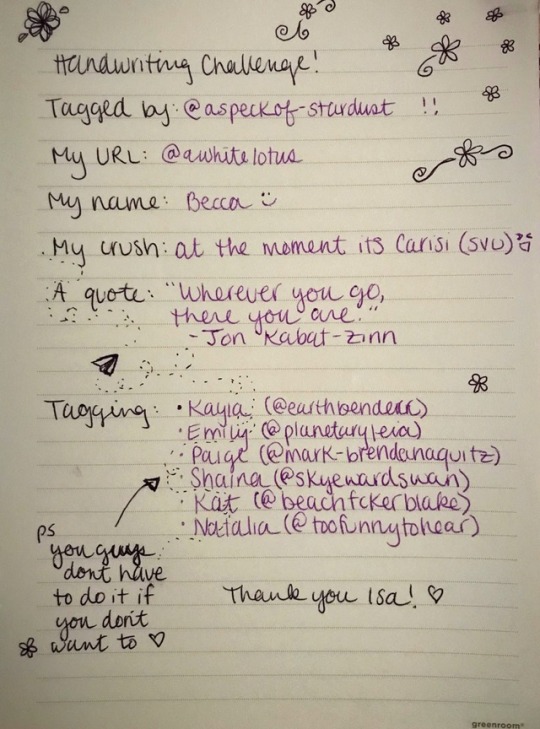 Handwriting Challenge!
Tagged by: @aspeckof-stardust !!
My URL: @awhitelotus
My name: Becca
My crush: at the moment its Carisi (SVU)
A quote: "Wherever you go,
there you are."
- Jon Kabat-Zinn
Tagging: • Kayla (@earthbenderr)
• Emily (@planetaryleia)
• Paige (@mark-brendanaquitz)
• Shaina (@skyewardswan)
• Kat (@beachfckerblake)
• Natalia (@toofunnytohear)
ps
you guys
dont have
to do it if
you don't
want to ♡
Thank you Isa! ♡
greenroom®